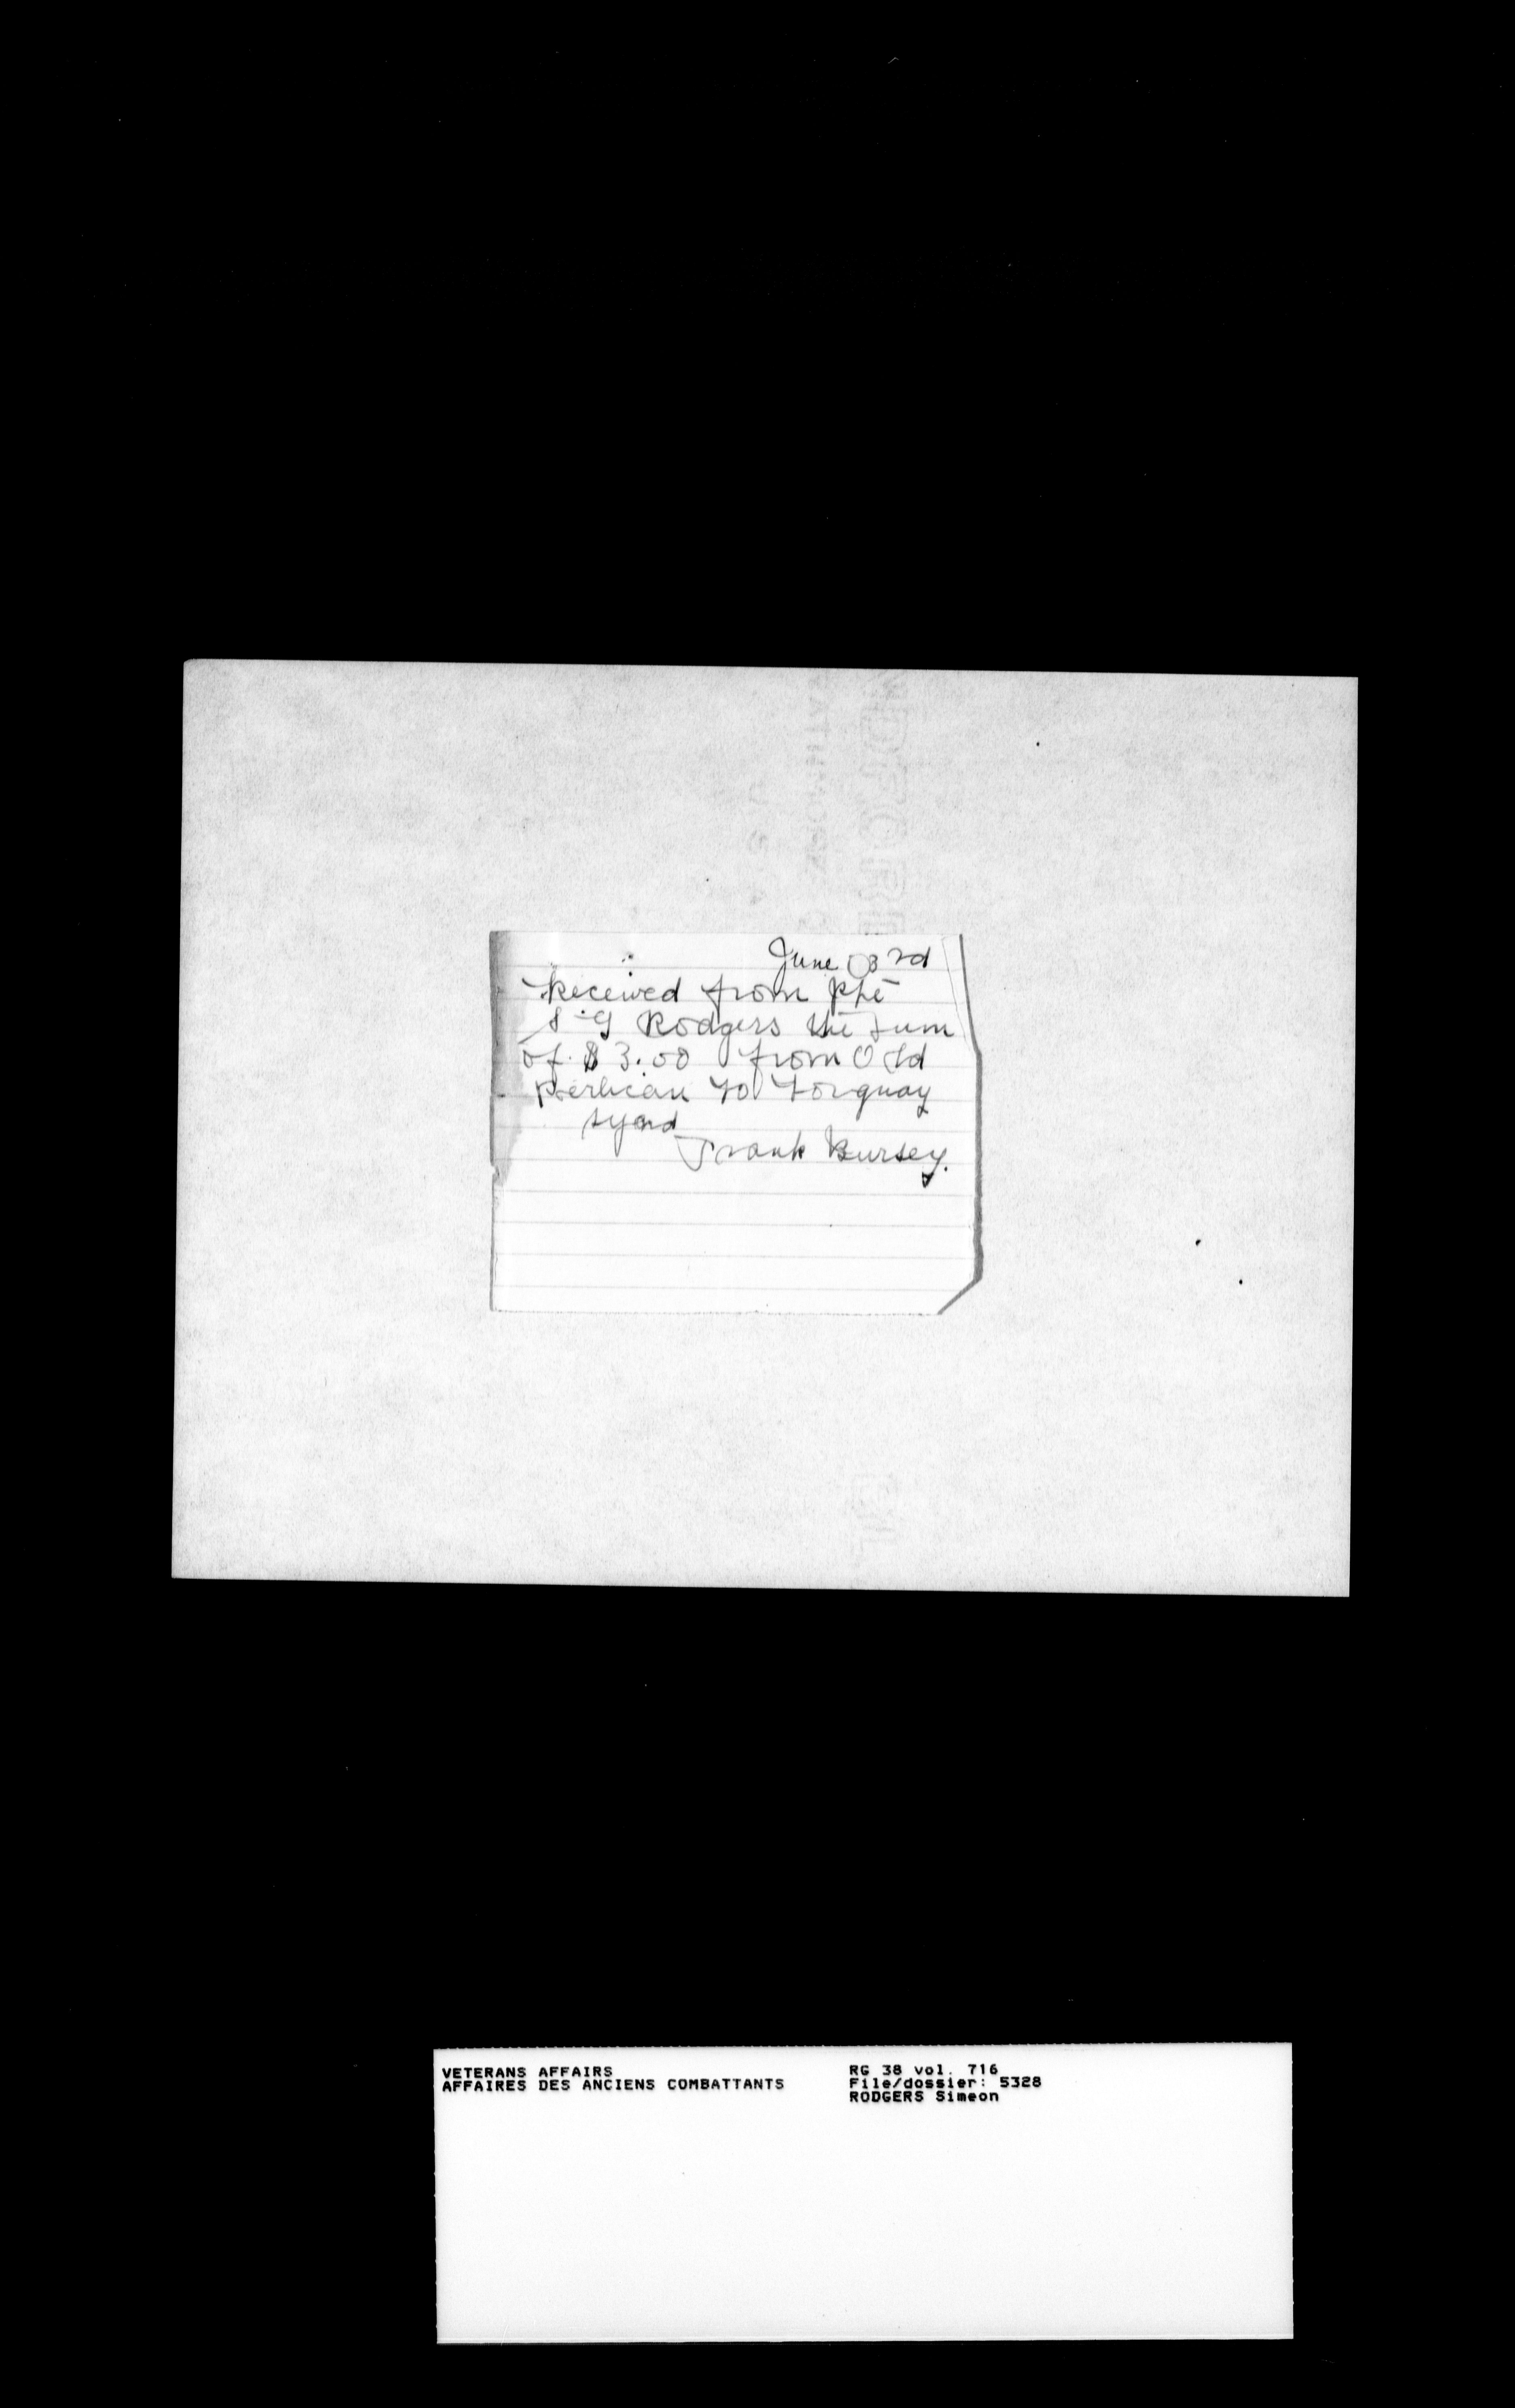 June 3rd
Received from Pte
S G Rodgers the sum
of $3.00 from Old
Perlican to Torquay
Sygnd
Frank Bursey.
VETERANS AFFAIRS
AFFAIRES DES ANCIENS COMBATTANTS
RG 38 vol. 716
File/dossier: 5328
RODGERS Simeon